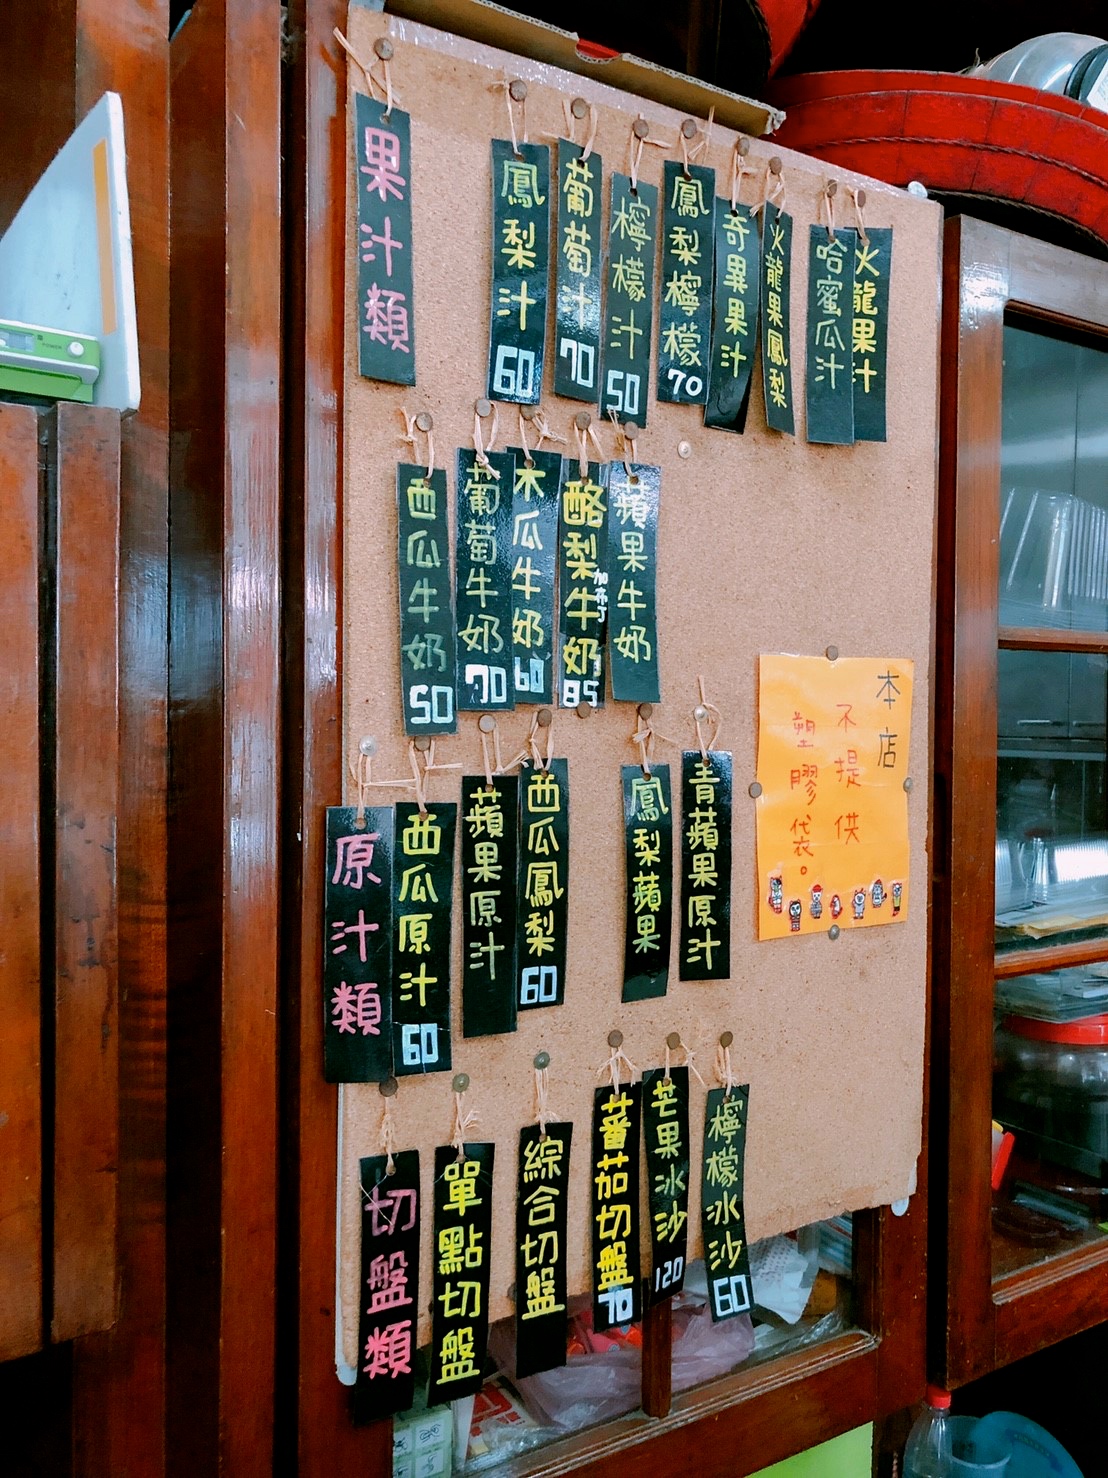 果汁類
鳳梨汁 60
葡萄汁 70
檸檬汁 50
鳳梨檸檬 70
奇異果汁
火龍果鳳梨
哈蜜瓜汁
火龍果汁
西瓜牛奶 50
葡萄牛奶 70
木瓜牛奶 60
酪梨牛奶 85
加布丁
蘋果牛奶
原汁類
西瓜原汁 60
蘋果原汁
西瓜鳳梨 60
鳳梨蘋果
青蘋果原汁
本店
不提供
塑膠袋。
切盤類
單點切盤
綜合切盤
蕃茄切盤 70
芒果冰沙 120
檸檬冰沙 60